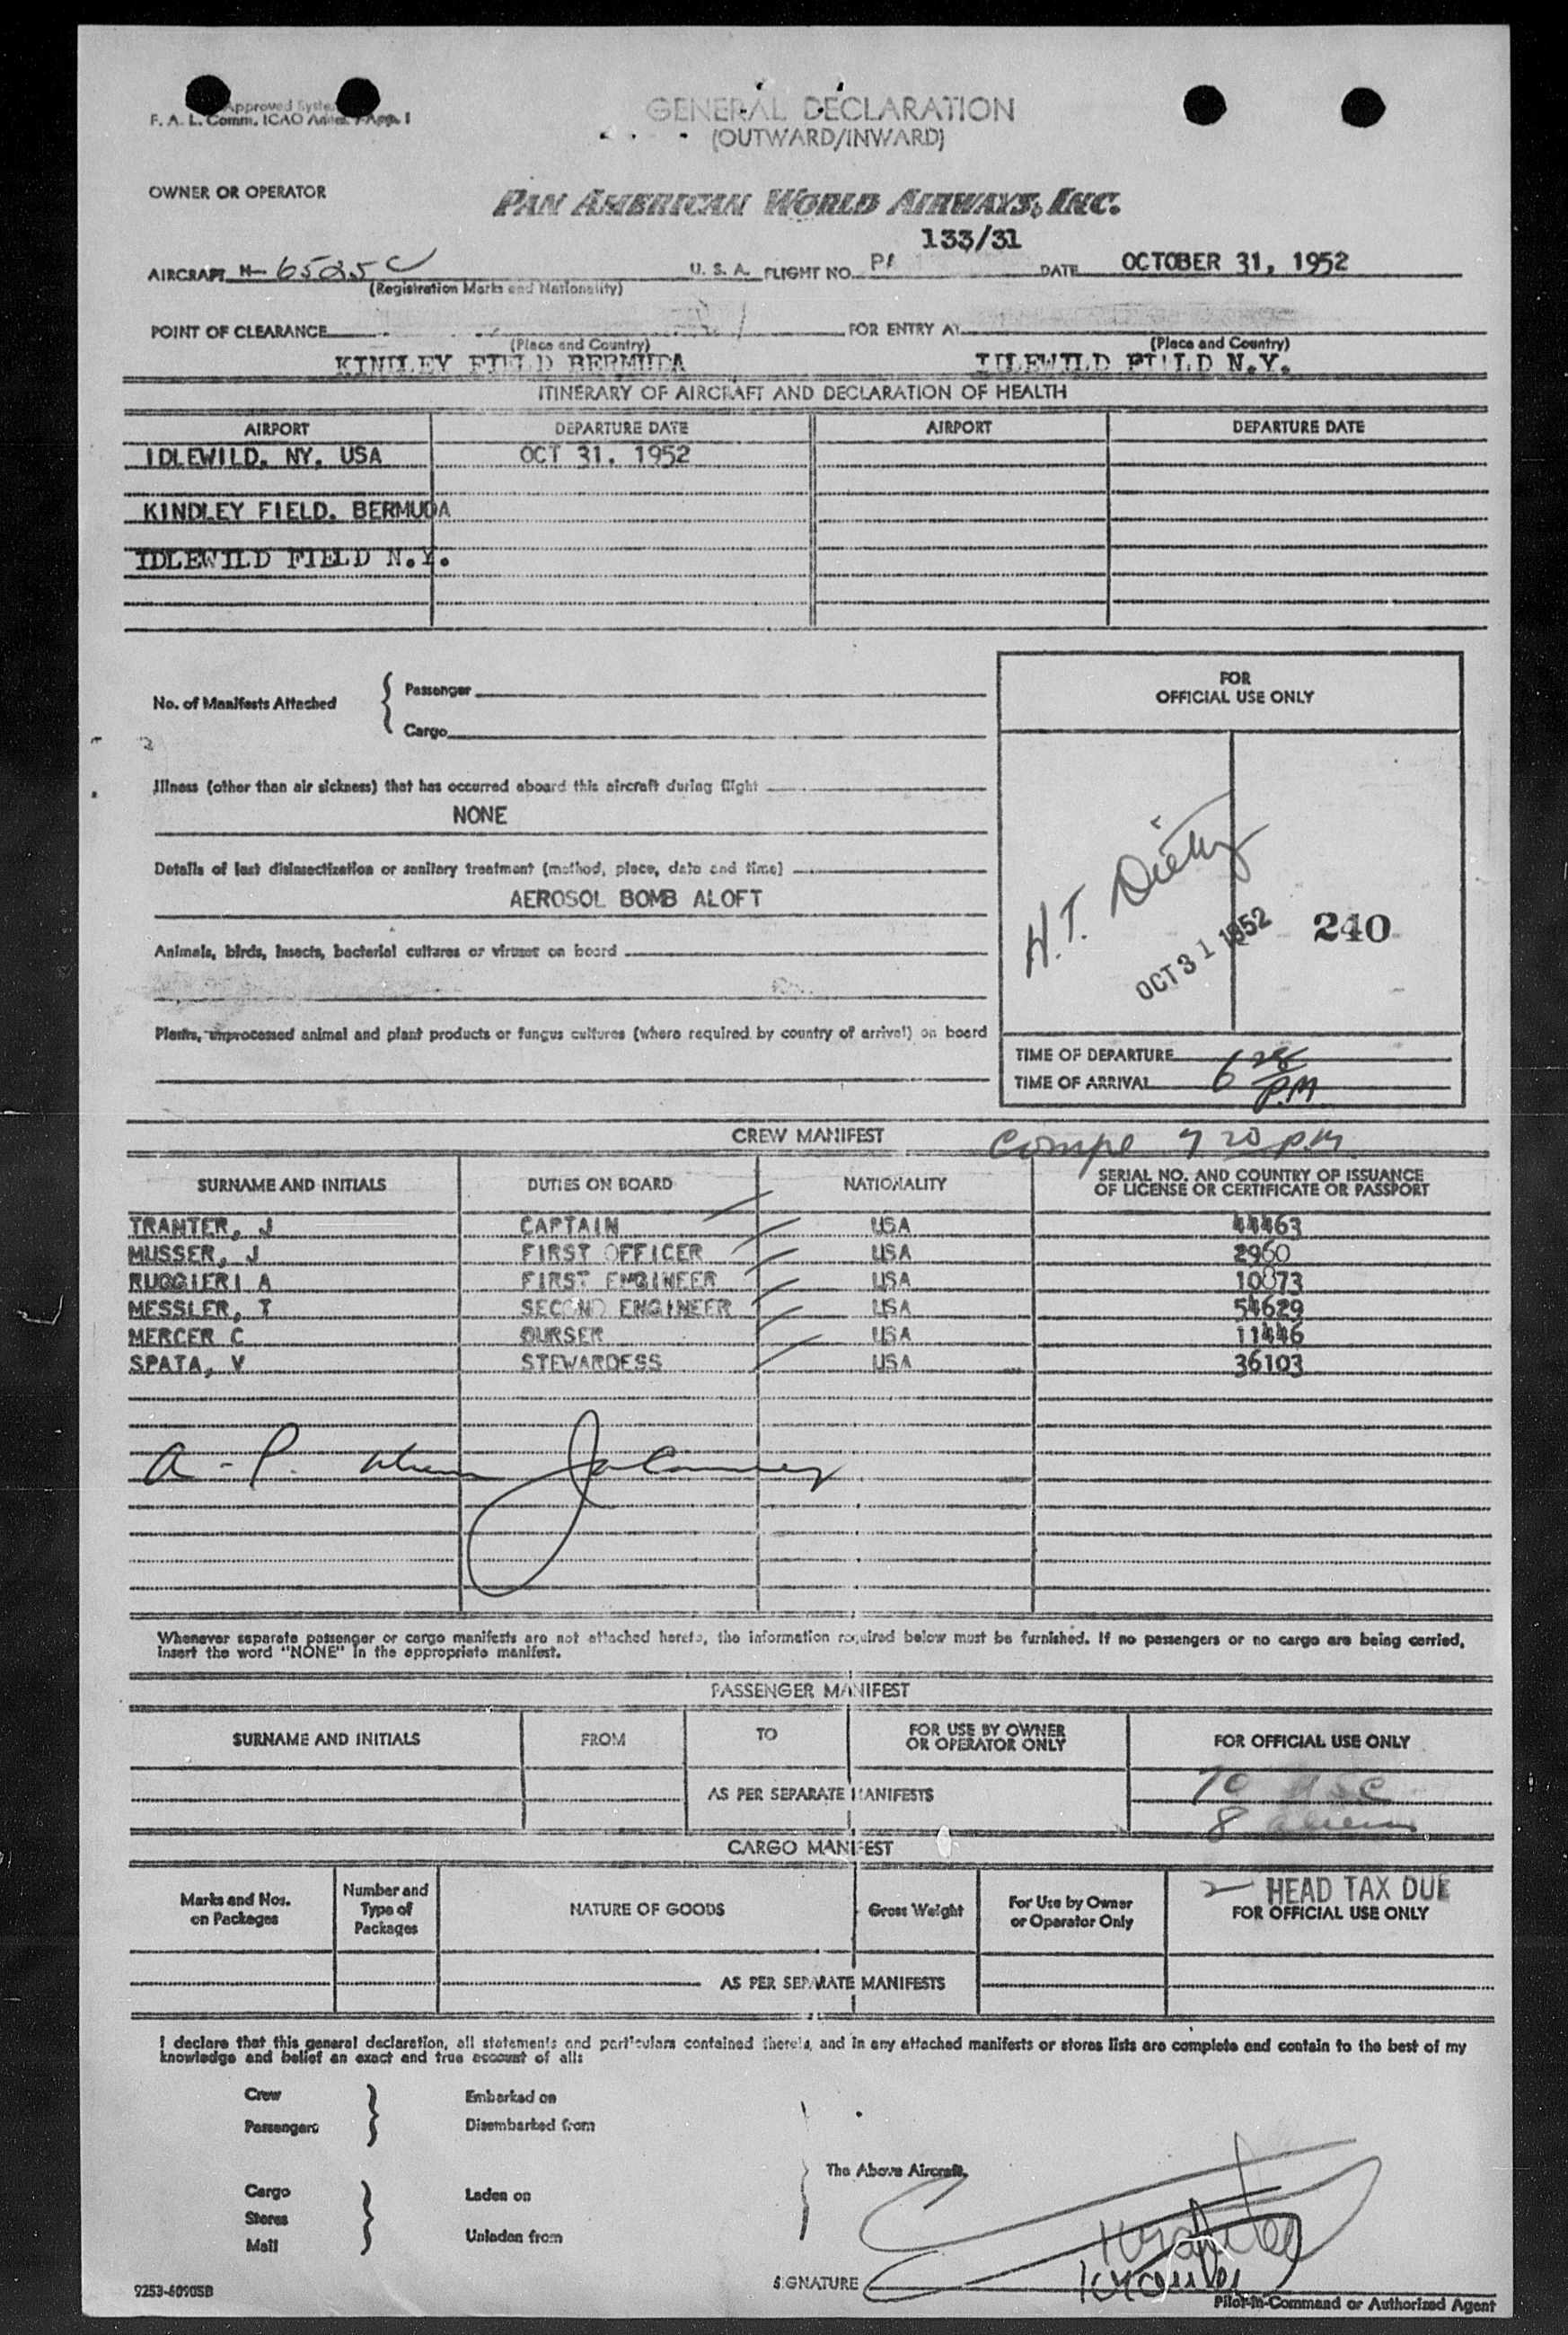 Approved Syste
F. A. L. Comm. ICAO Annex 9 App. 1
GENERAL DECLARATION
(OUTWARD/INWARD)
OWNER OR OPERATOR
PAN AMERICAN WORLD AIRWAYS, INC.
133/31
AIRCRAFT N- 6525C U. S. A. FLIGHT NO. PA DATE OCTOBER 31, 1952
(Registration Marks and Nationality)
POINT OF CLEARANCE FOR ENTRY AT
(Place and Country) (Place and Country)
KINDLEY FIELD BERMUDA IDLEWILD FIELD N.Y.
ITINERARY OF AIRCRAFT AND DECLARATION OF HEALTH
AIRPORT DEPARTURE DATE AIRPORT DEPARTURE DATE
IDLEWILD, NY, USA OCT 31, 1952
KINDLEY FIELD, BERMUDA
IDLEWILD FIELD N.Y.
No. of Manifests Attached { Passenger
Cargo
FOR
OFFICIAL USE ONLY
Illness (other than air sickness) that has occurred aboard this aircraft during flight
NONE
Details of last disinsectization or sanitary treatment (method, place, date and time)
AEROSOL BOMB ALOFT
Animals, birds, insects, bacterial cultures or viruses on board
Plants, unprocessed animal and plant products or fungus cultures (where required by country of arrival) on board
H.T.
OCT 31 1952
240
TIME OF DEPARTURE
TIME OF ARRIVAL 6 28 P.M.
CREW MANIFEST
Compl 7 20 P.M.
SURNAME AND INITIALS DUTIES ON BOARD NATIONALITY SERIAL NO. AND COUNTRY OF ISSUANCE
OF LICENSE OR CERTIFICATE OR PASSPORT
TRANTER, J CAPTAIN USA 44463
MUSSER, J FIRST OFFICER USA 2960
RUGGIERI A FIRST ENGINEER USA 10873
MESSLER, T SECOND ENGINEER USA 54629
MERCER C PURSER USA 11446
SPATA, V STEWARDESS USA 36103
A-P.
Whenever separate passenger or cargo manifests are not attached hereto, the information required below must be furnished. If no passengers or no cargo are being carried,
insert the word "NONE" in the appropriate manifest.
PASSENGER MANIFEST
SURNAME AND INITIALS FROM TO FOR USE BY OWNER
OR OPERATOR ONLY FOR OFFICIAL USE ONLY
AS PER SEPARATE MANIFESTS
10 USC
8 aliens
CARGO MANIFEST
Marks and Nos.
on Packages Number and
Type of
Packages NATURE OF GOODS Gross Weight For Use by Owner
or Operator Only 2 HEAD TAX DUE
FOR OFFICIAL USE ONLY
AS PER SEPARATE MANIFESTS
I declare that this general declaration, all statements and particulars contained therein, and in any attached manifests or stores lists are complete and contain to the best of my
knowledge and belief an exact and true account of all:
Crew
Passengers } Embarked on
Disembarked from
The Above Aircraft.
Cargo
Stores
Mail } Laden on
Unladen from
SIGNATURE
Pilot-in-Command or Authorized Agent
9253-60905B